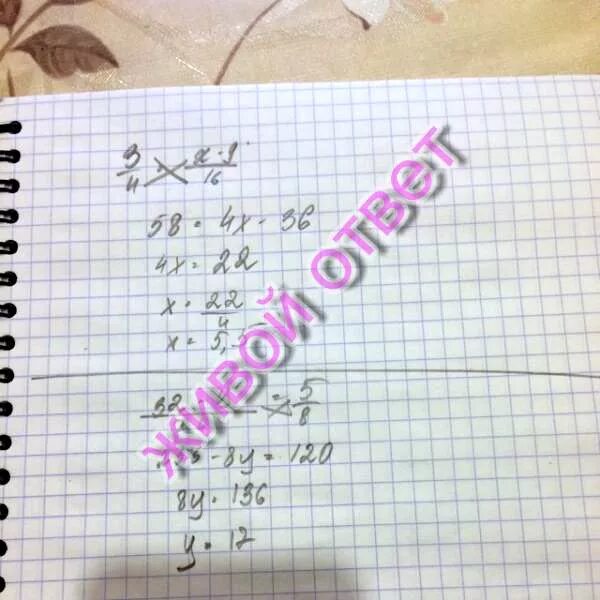 3/4 = x-9/16
58 = 4x - 36
4x = 22
x = 22/4
x = 5,5
= 5/8
- 8y = 120
8y = 136
y = 17
ЖИВОЙ ОТВЕТ